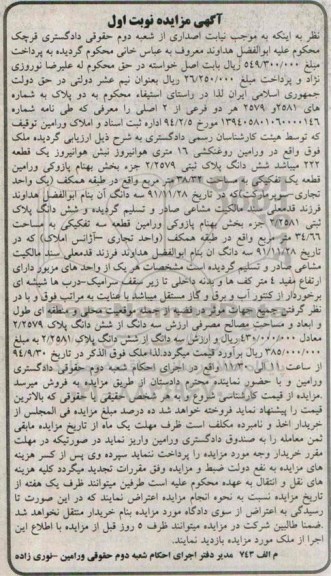 آگهی مزایده نوبت اول
نظر به اینکه به موجب نیابت اصداری از شعبه دوم حقوقی دادگستری قرچک
محکوم علیه ابوالفضل هداوند معروف به عباس خانی محکوم گردیده به پرداخت
مبلغ ۵۴۹/۳۰۰/۰۰۰ ریال بابت اصل خواسته در حق محکوم له علیرضا نوروزی
نژاد و پرداخت مبلغ ۲۶/۲۵۰/۰۰۰ ریال بعنوان نیم عشر دولتی در حق دولت
جمهوری اسلامی ایران لذا در راستای استیفاء محکوم به دو پلاک به شماره
های ۲۵۸۱و ۲۵۷۹ هر دو فرعی از ۲ اصلی را معرفی که طی نامه شماره
۱۳۹۴۰۵۸۰۱۰۶۰۰۰۰۱۴۶ مورخ ۹۴/۲/۵ اداره ثبت اسناد و املاک ورامین توقیف
که توسط هیئت کارشناسان رسمی دادگستری به شرح ذیل ارزیابی گردیده ملک
فوق واقع در ورامین روغنکشی ۱۶ متری هوانیروز نبش هوانیروز یک قطعه
۲۲۲ میباشد شش دانگ پلاک ثبتی ۲/۲۵۷۹ جزء بخش بهنام پازوکی ورامین
قطعه یک تفکیکی به مساحت ۳۸/۳۲ متر مربع واقع در طبقه همکف (یک واحد
تجاری-سوپرمارکت)که در تاریخ ۹۱/۱۱/۲۸ سه دانگ آن بنام ابوالفضل هداوند
فرزند قدمعلی سند مالکیت مشاعی صادر و تسلیم گردیده و شش دانگ پلاک
۲/۲۵۸۱ ثبتی جزء بخش بهنام پازوکی ورامین قطعه سه تفکیکی به مساحت
۳۴/۶۶ متر مربع واقع در طبقه همکف (واحد تجاری –آژانس املاک) که در
تاریخ ۹۱/۱۱/۲۸ سه دانگ آن بنام ابوالفضل هداوند فرزند قدمعلی سند مالکیت
مشاعی صادر و تسلیم گردیده است مشخصات هر یک از واحد های مزبور دارای
ارتفاع مفید ۴ متر کف ها و بدنه داخلی تا زیر سقف سرامیک-درب ها شیشه ای
برخوردار از کنتور آب و برق و گاز مستقل میباشد با عنایت به مراتب فوق و با در
نظر گرفتن جمیع جهات موثر در قضیه از جمله موقعیت محلی و منطقه ای طول
و ابعاد و مساحت مصالح مصرفی ارزش سه دانگ از شش دانگ پلاک ۲/۲۵۷۹
معادل ۴۳۰/۰۰۰/۰۰۰ ریال و ارزش سه دانگ از شش دانگ پلاک ۲/۲۵۸۱ به مبلغ
۳۸۵/۰۰۰/۰۰۰ ریال برآورد قیمت میگردد.لذا ملک فوق الذکر در تاریخ ۹۴/۹/۳۰
از ساعت ۱۱ الی ۱۱/۳۰ واقع در اجرای احکام شعبه دوم حقوقی دادگستری
ورامین و با حضور نماینده محترم دادستان از طریق مزایده به فروش میرسد
.مزایده از قیمت کارشناسی شروع و به هر شخص حقیقی حقوقی که بالاترین
قیمت را پیشنهاد نماید فروخته خواهد شد ده درصد مبلغ مزایده فی المجلس از
خریدار اخذ و نامبرده مکلف است ظرف مهلت یک ماه از تاریخ مزایده مابقی
ثمن معامله را به صندوق دادگستری ورامین واریز نماید در صورتیکه در مهلت
مقرر خریدار وجه مورد مزایده را پرداخت ننماید سپرده وی پس از کسر هزینه
های مزایده به نفع دولت ضبط و مزایده وفق مقررات تجدید میگردد کلیه هزینه
های نقل و انتقال به عهده محکوم علیه است طرفین میتوانند ظرف یک هفته از
تاریخ مزایده نسبت به نحوه انجام مزایده اعتراض نمایند که در این صورت تا
رسیدگی به اعتراض از سوی دادگاه مورد مزایده بنام خریدار منتقل نخواهد شد
.ضمنا طالبین شرکت در مزایده میتوانند ظرف ۵ روز قبل از مزایده با اطلاع این
اجرا از ملک مورد مزایده بازدید نمایند.
م الف ۷۴۳ مدیر دفتر اجرای احکام شعبه دوم حقوقی ورامین –نوری زاده